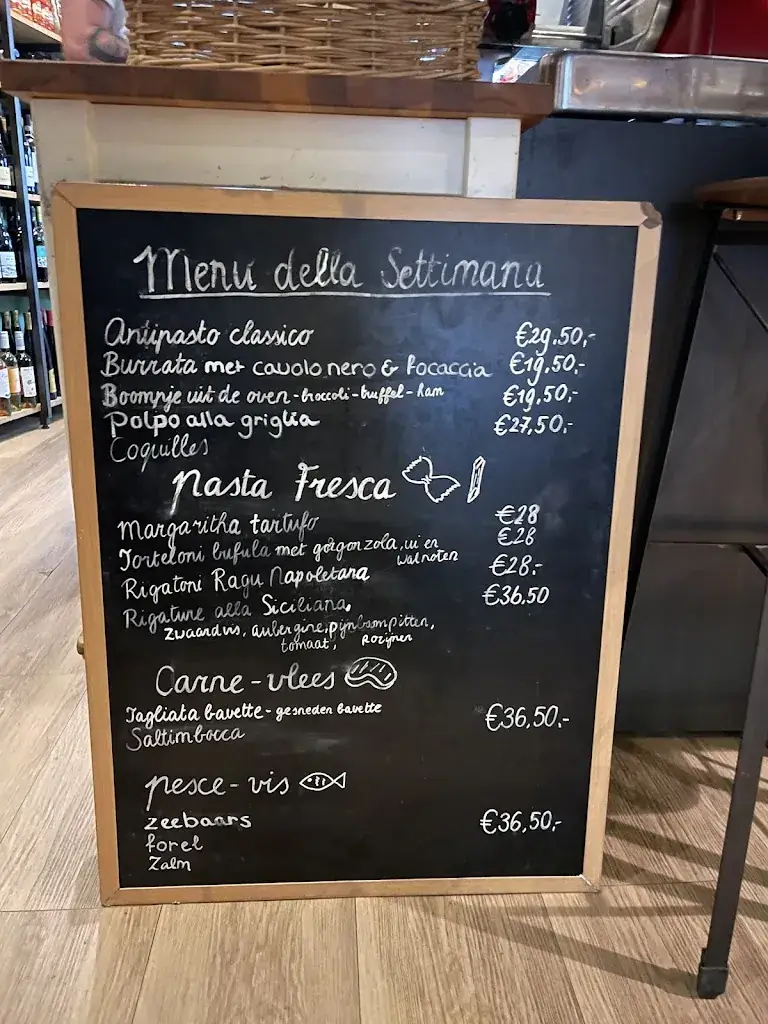 Menu della Settimana
Antipasto classico €29.50,-
Burrata met cavolo nero & focaccia €19.50,-
Boompje uit de oven - broccoli - truffel - ham €19,50,-
Polpo alla griglia €27,50,-
Coquilles
Pasta Fresca
Margaritha tartufo €28
Torteloni bufula met gorgonzola, ui en walnoten €28
Rigatoni Ragu Napoletana €28.-
Rigature alla Siciliana, €36,50
Zwaardvis, aubergine, pijnboompitten,
tomaat, Rozijnen
Carne - vlees
Tagliata bavette - gesneden bavette €36,50.-
Saltimbocca
pesce - vis
zeebaars €36,50,-
forel
Zalm